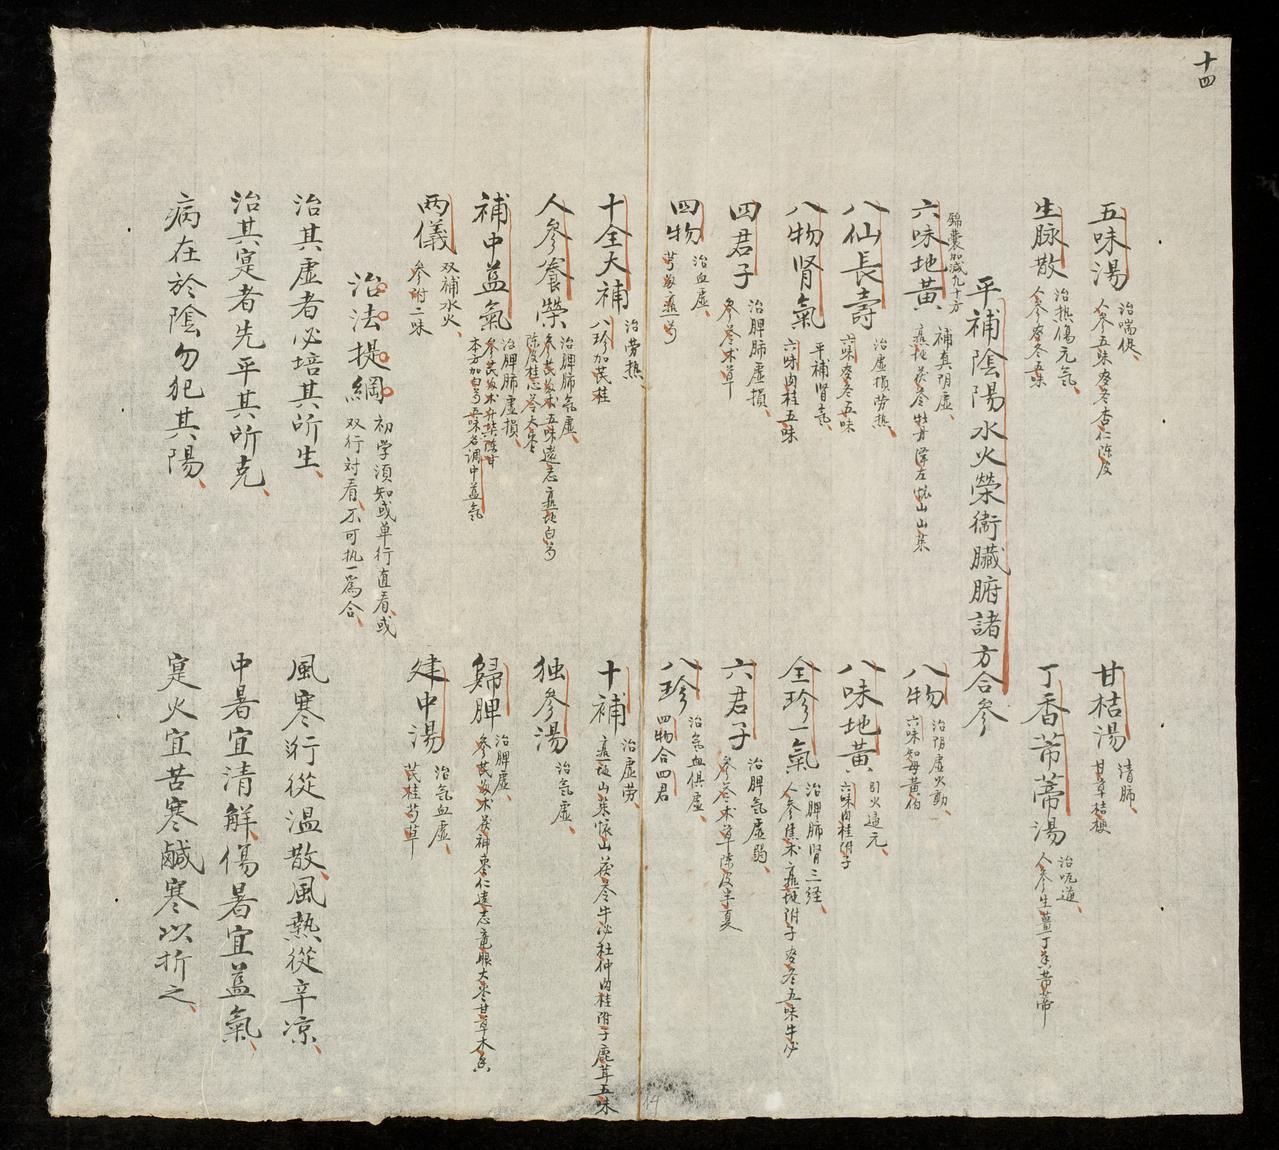 十四
五味湯 治喘促 人参五味麥冬杏仁陈皮
甘桔湯 清肺 甘草桔梗
生脉散 治热傷元氣 人参麥冬五味
丁香蒂湯 治呃逆 人参生薑丁香蒂
平補陰陽水火榮衛臓腑諸方合参
錦囊加減九十方
六味地黃 補真阴虚 茯苓牡丹澤左懷山山茱
八物 治阴虚火動 六味知母黃伯
八仙長壽 治虚損劳热 六味麥冬五味
八味地黃 引火还元 六味肉桂附子
八物肾氣 平補肾氣 六味肉桂五味
全珍一氣 治脾肺肾三经 人参焦术附子麥冬五味牛必
四君子 治脾肺虚損 参苓术草
六君子 治脾氣虚弱 参苓术草陈皮半夏
四物 治血虚
八珍 治氣血俱虚 四物合四君
十全大補 治劳热 八珍加芪桂
十補 治虚劳 山茱懷山茯苓牛必杜仲肉桂附子鹿茸五味
人參養榮 治脾肺氣虚 五味遠志白芍陈皮桂心苓大枣
独參湯 治氣虚
補中益氣 治脾肺虚損 本方加白芍五味名调中益氣
歸脾 治脾虚 参芪术茯神枣仁遠志竜眼大枣甘草木香
两儀 双補水火 参附二味
建中湯 治氣血虚 芪桂芍草
治法提綱 初学須知或单行直看或双行对看不可执一為合
治其虚者必培其所生
風寒行從温散風熱從辛凉
治其寔者先平其所克
中暑宜清解傷暑宜益氣
病在於陰勿犯其陽
寔火宜苦寒鹹寒以折之